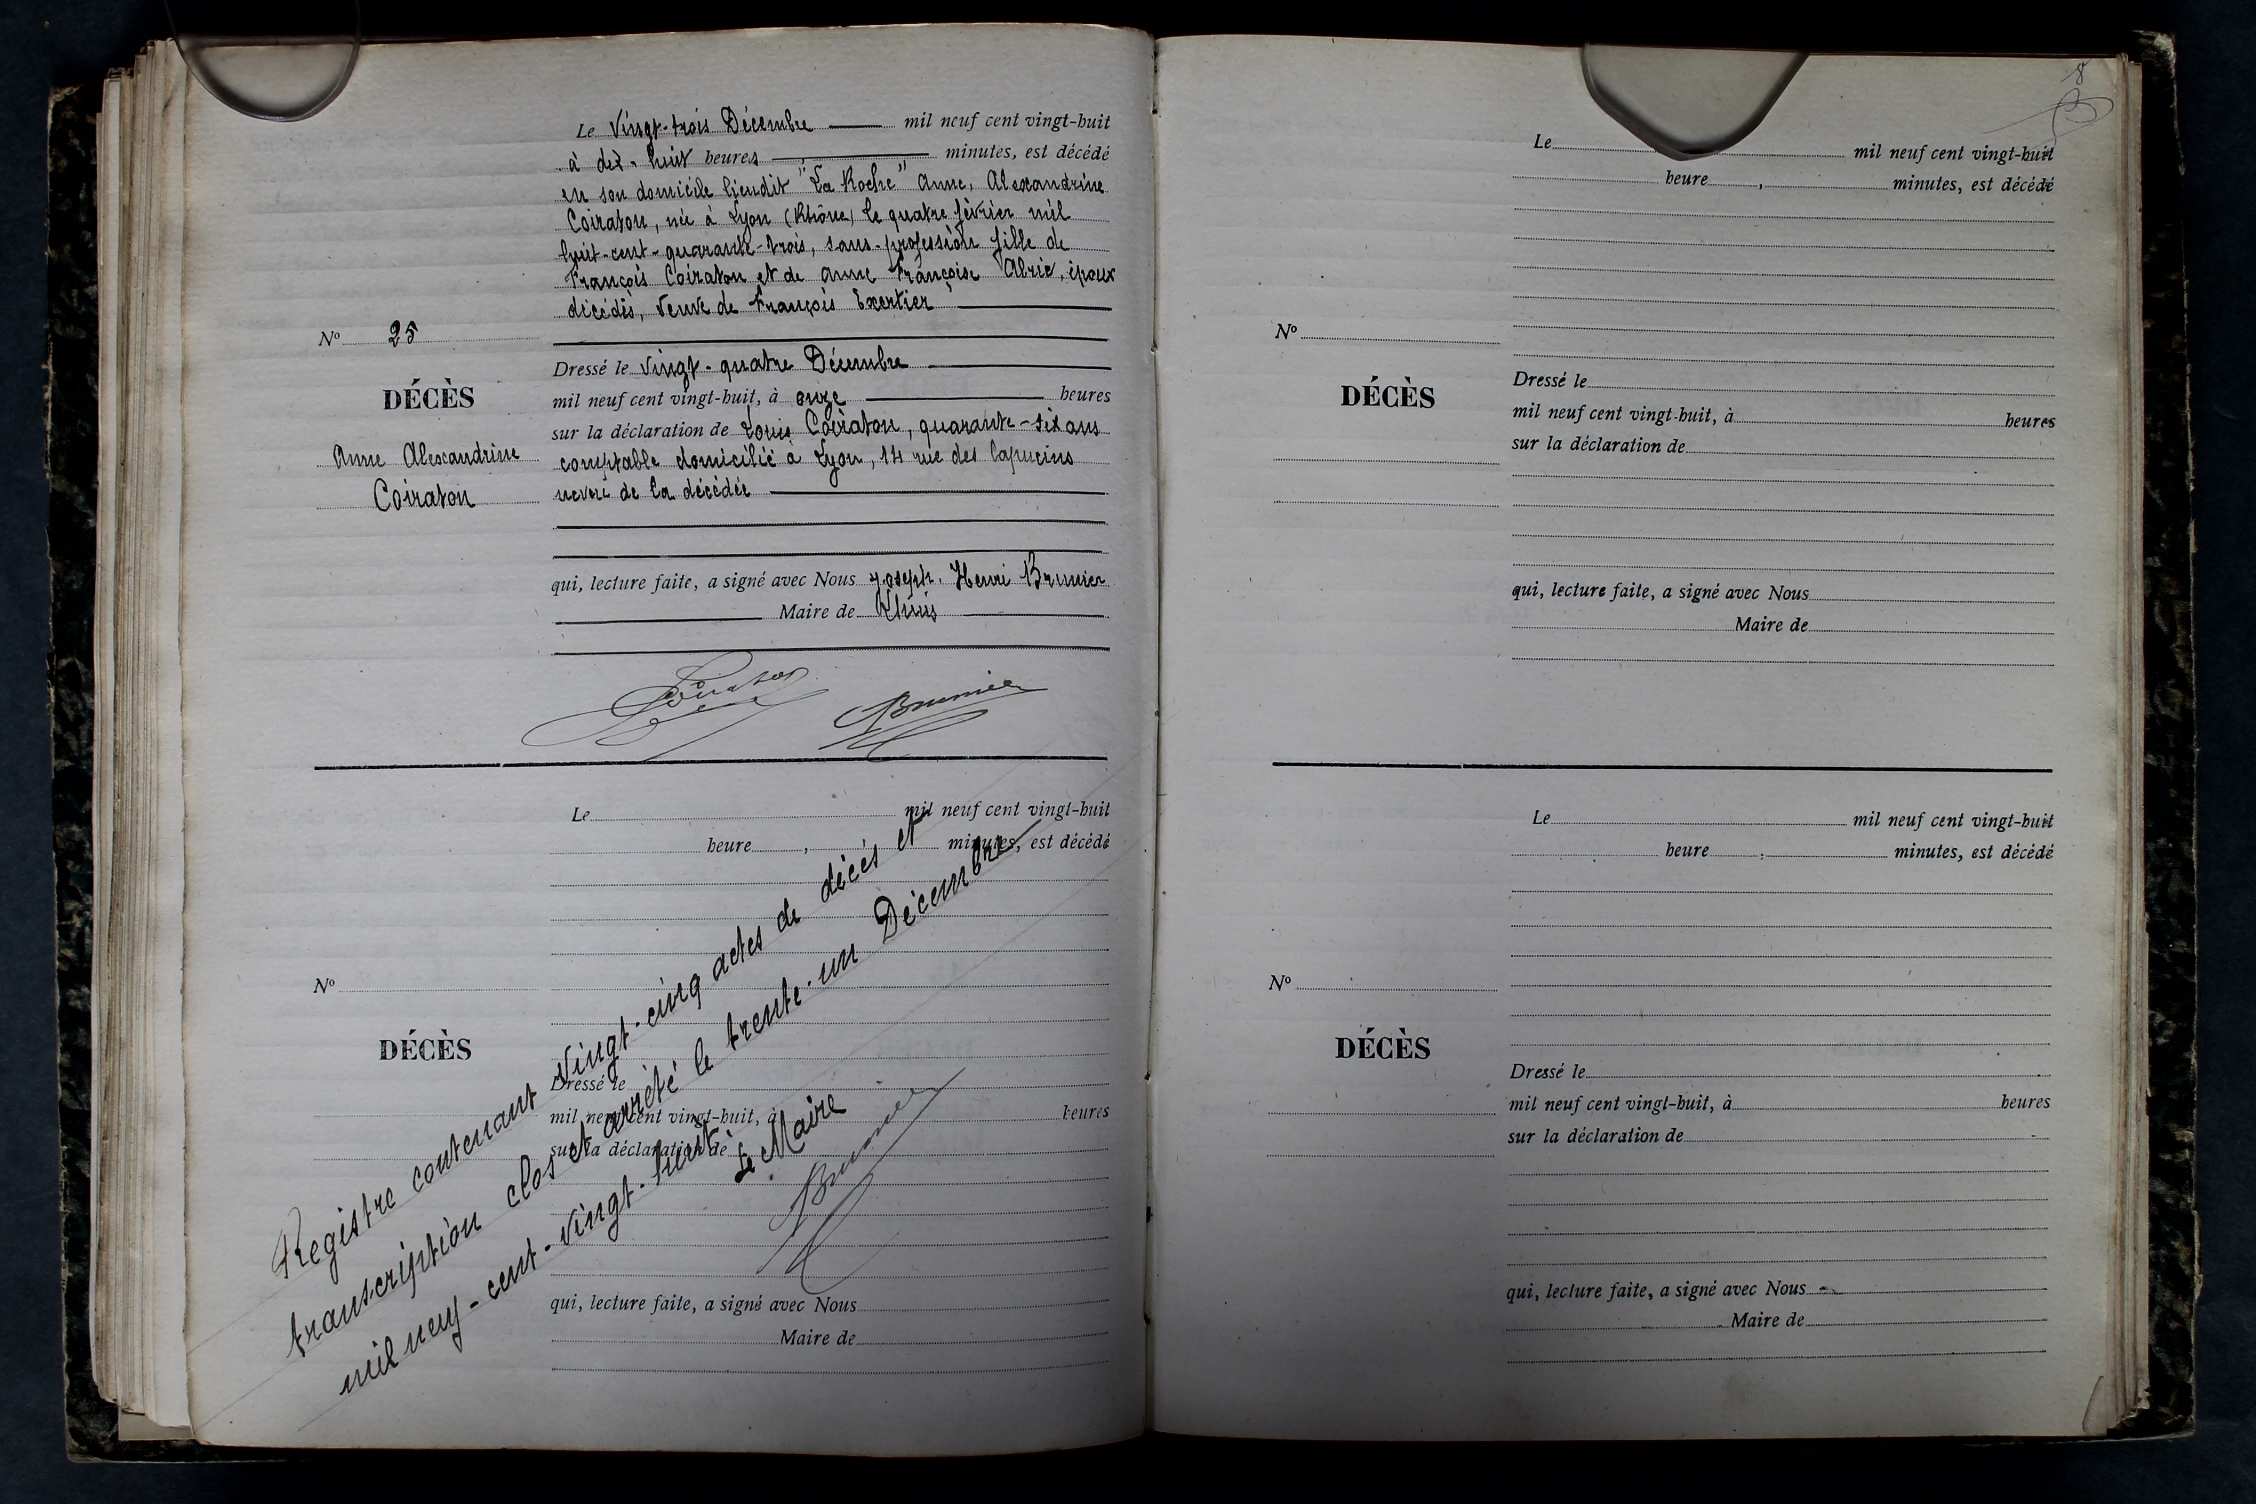 Le Vingt-trois Décembre mil neuf cent vingt-huit
à dix-huit heures minutes, est décédé
en son domicile lieudit "La Roche" Anne, Alexandrine
Coiraton, née à Lyon (Rhône) le quatre février mil
huit-cent-quarante-trois, sans-profession fille de
François Coiraton et de Anne Françoise Abric, époux
décédés, Veuve de François Exertier
No 25
Dressé le Vingt-quatre Décembre
DÉCÈS
mil neuf cent vingt-huit, à onze heures
sur la déclaration de Louis Coiraton, quarante-six ans
Anne Alexandrine
comptable domicilié à Lyon, 14 rue des Capucins
Coiraton
neveu de la décédée
qui, lecture faite, a signé avec Nous Joseph. Henri Brunier
Maire de
Coiraton
Brunier
Le mil neuf cent vingt-huit
heure, minutes, est décédé
No
DÉCÈS
Dressé le
mil neuf cent vingt-huit, à heures
sur la déclaration de
qui, lecture faite, a signé avec Nous
Maire de
Registre contenant Vingt-cinq actes de décès et
transcription clos et arrêté le trente-un Décembre
mil neuf-cent-vingt-huit
Le Maire
Brunier
8
Le mil neuf cent vingt-huit
heure, minutes, est décédé
No
DÉCÈS
Dressé le
mil neuf cent vingt-huit, à heures
sur la déclaration de
qui, lecture faite, a signé avec Nous
Maire de
Le mil neuf cent vingt-huit
heure, minutes, est décédé
No
DÉCÈS
Dressé le
mil neuf cent vingt-huit, à heures
sur la déclaration de
qui, lecture faite, a signé avec Nous
Maire de